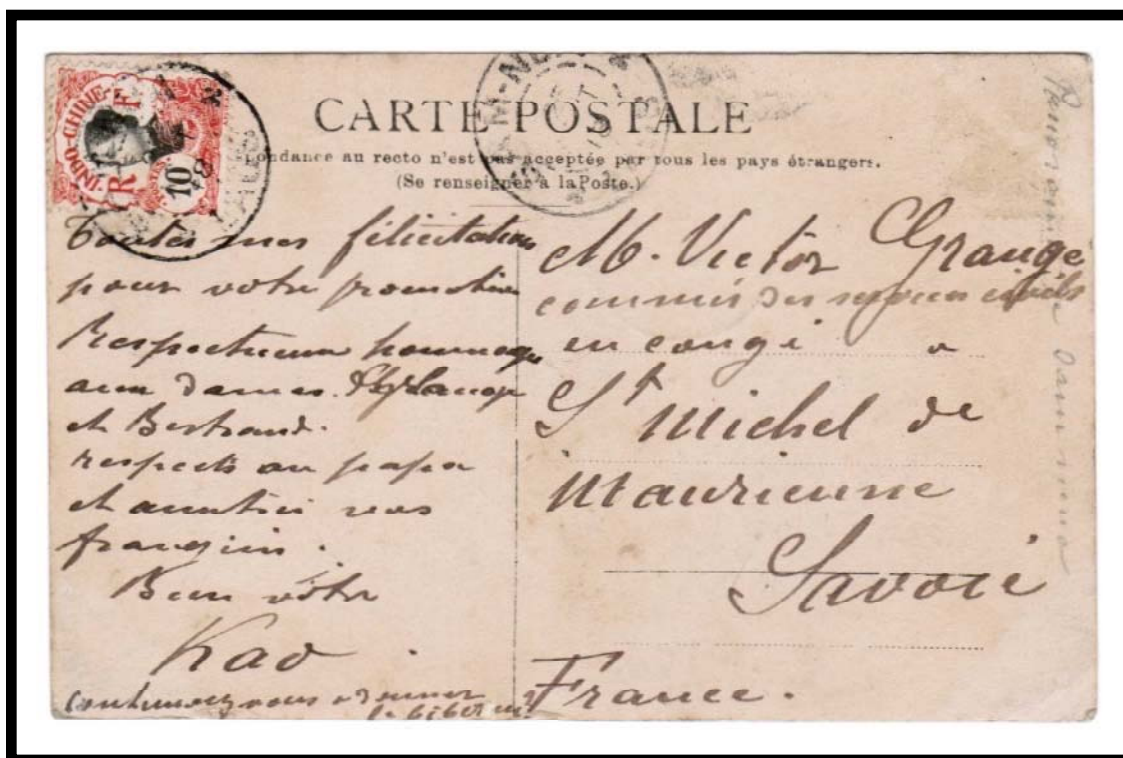 INDO-CHINE
R F
10
CARTE POSTALE
pondance au recto n'est pas acceptée par tous les pays étrangers.
(Se renseigner à la Poste.)
Toutes mes félicitations
pour votre promotion
Respectueux hommages
aux dames. Grange
et Bertrand.
respects au papa
et amitiés aux
frangins.
Bien vôtre
Kao.
continuez vous à donner
le biberon
M. Victor Grange
commis des services civils
en congé a
St Michel de
Maurienne
Savoie
France.